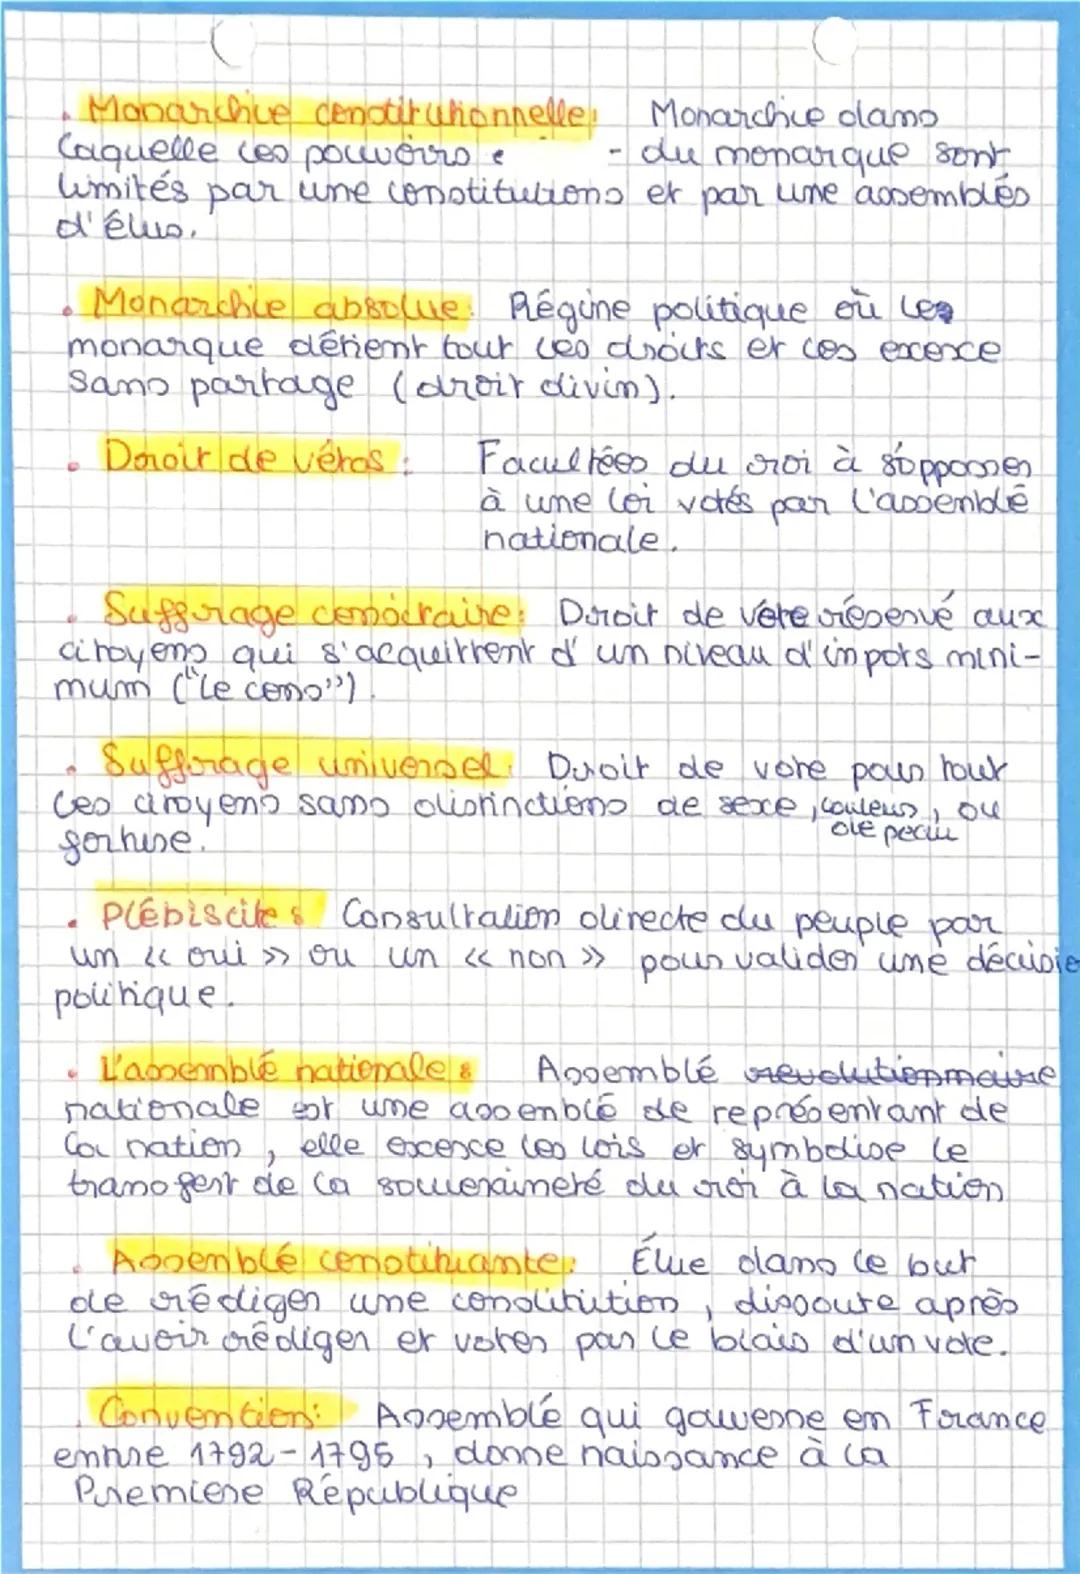 • Monarchie constitutionnelle: Monarchie dans
laquelle les pouvoirs e - du monarque sont
limités par une constitutions et par une assemblés
d'élus.
• Monarchie absolue: Régime politique où les
monarque détient tout les droits et les exerce
sans partage (droit divin).
• Droit de vétos : Facultées du roi à s'opposser
à une loi votés par l'assemblé
nationale.
• Suffrage censitaire: Droit de vote réservé aux
citoyens qui s'acquittent d'un niveau d'impots mini-
mum ("le cens").
• Suffrage universel: Droit de vote pour tout
les citoyens sans distinctions de sexe, couleurs, ou
de peau
fortune.
• Plébiscite : Consultation directe du peuple par
un « oui » ou un « non » pour valider une décisio
politique.
• L'assemblé nationale : Assemblé révolutionnaire
nationale est une assemblé de représentant de
la nation, elle excerce les lois et symbolise le
transfert de la souveraineté du roi à la nation
• Assemblé constituante: Élue dans le but
de rédiger une constitution, dissoute après
l'avoir rédiger et voter par le biais d'un vote.
• Convention: Assemblé qui gouverne en France
entre 1792-1795, donne naissance à la
Premiere République